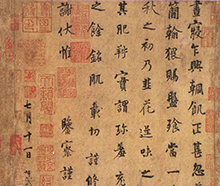 晝寢乍興輖飢正甚忽
簡翰猥賜盤飧當一
秋之初乃韭花逞味之
其肥羜實謂珍羞
之餘銘肌載切謹修
謝伏惟鑒察謹
七月十一日